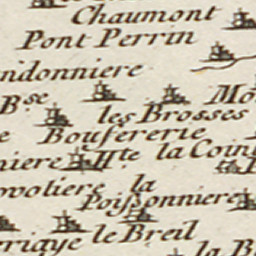 Chaumont
Pont Perrin
ndonniere
Bse
les Brosses
Boufererie
niere Hte la Coin
ovotiere la
Poissonniere
le Breil
la B